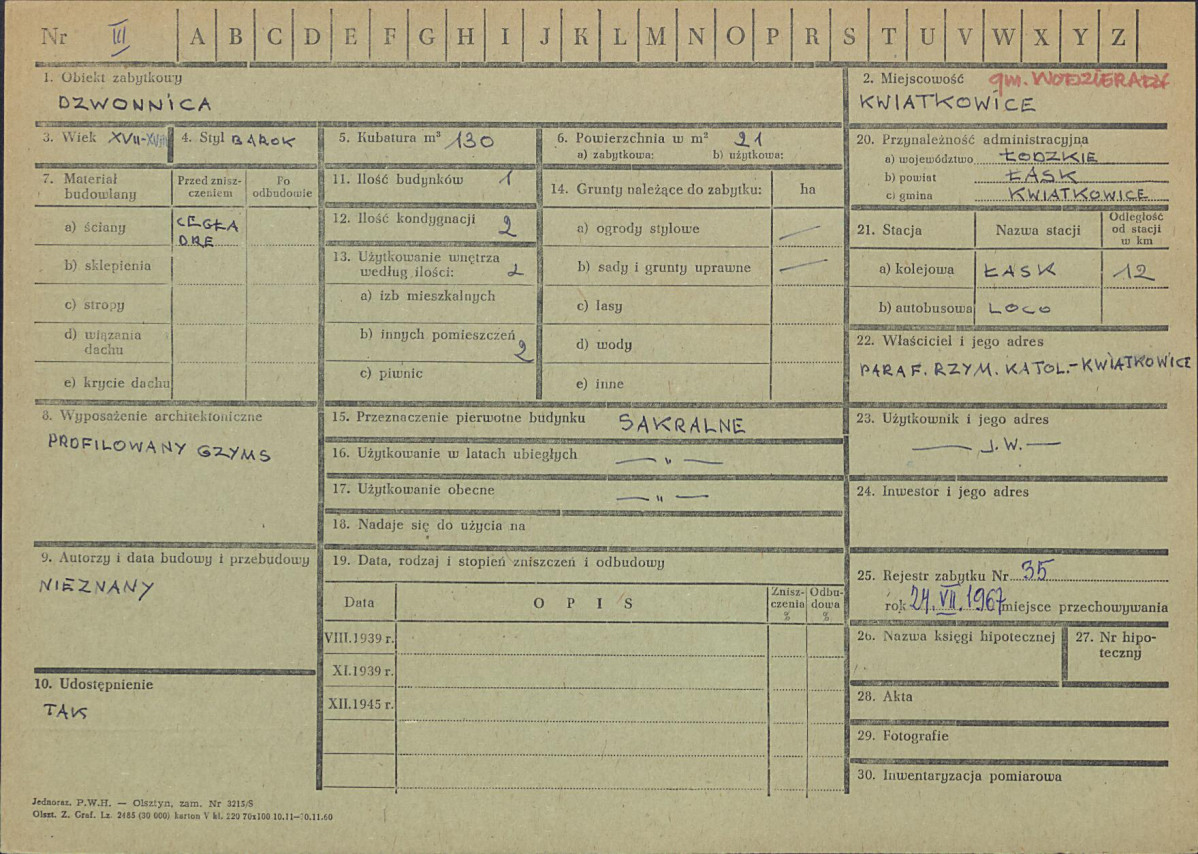 Nr III A B C D E F G H I J K L M N O P R S T U V W X Y Z
1. Obiekt zabytkowy
DZWONNICA
2. Miejscowość gm. WODZIERADY
KWIATKOWICE
3. Wiek XVII-XVIII
4. Styl BAROK
5. Kubatura m³ 130
6. Powierzchnia w m² 21
a) zabytkowa: b) użytkowa:
7. Materiał budowlany
Przed zniszczeniem
Po odbudowie
a) ściany CEGŁA
DRE
b) sklepienia
c) stropy
d) wiązania dachu
e) krycie dachu
8. Wyposażenie architektoniczne
PROFILOWANY GZYMS
9. Autorzy i data budowy i przebudowy
NIEZNANY
10. Udostępnienie
TAK
11. Ilość budynków 1
12. Ilość kondygnacji 2
13. Użytkowanie wnętrza
według ilości: 2
a) izb mieszkalnych
b) innych pomieszczeń 2
c) piwnic
14. Grunty należące do zabytku: ha
a) ogrody stylowe —
b) sady i grunty uprawne —
c) lasy
d) wody
e) inne
15. Przeznaczenie pierwotne budynku SAKRALNE
16. Użytkowanie w latach ubiegłych — " —
17. Użytkowanie obecne — " —
18. Nadaje się do użycia na
19. Data, rodzaj i stopień zniszczeń i odbudowy
Data OPIS Zniszczenia % Odbudowa %
VIII.1939 r.
XI.1939 r.
XII.1945 r.
20. Przynależność administracyjna
a) województwo ŁÓDZKIE
b) powiat ŁASK
c) gmina KWIATKOWICE
21. Stacja Nazwa stacji Odległość od stacji w km
a) kolejowa ŁASK 12
b) autobusowa LOCO
22. Właściciel i jego adres
PARAF. RZYM. KATOL.-KWIATKOWICE
23. Użytkownik i jego adres
— J.W. —
24. Inwestor i jego adres
25. Rejestr zabytku Nr 35
rok 24.VII.1967 miejsce przechowywania
26. Nazwa księgi hipotecznej
27. Nr hipoteczny
28. Akta
29. Fotografie
30. Inwentaryzacja pomiarowa
Jednoraz. P.W.H. — Olsztyn, zam. Nr 3215/S
Olszt. Z. Graf. Lz. 2485 (30 000) karton V kl. 220 70x100 10.11—10.11.60